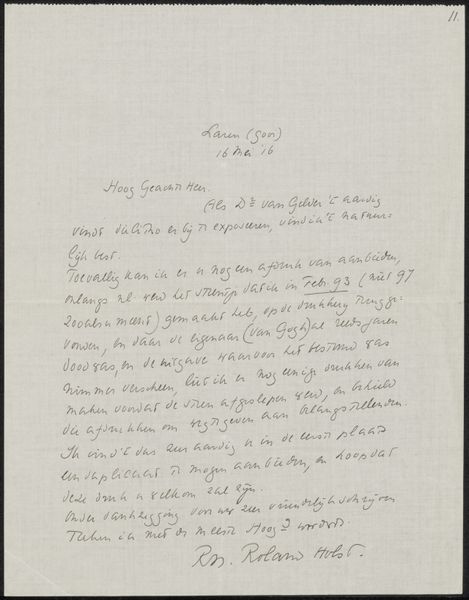 11.
Laren (Gooi)
16 Mei '16
Hoog Geachte Heer.
Als Dr van Gelder 't aardig
vindt die litho er bij te exposeeren, vind ik 't natuur-
lijk best.
Toevallig kan ik er u nog een afdruk van aanbieden,
onlangs nl. werd het steentje dat ik in Febr. 93 (niet 97
zooals u meent) gemaakt heb, op de drukkerij terugge-
vonden, en daar de eigenaar (van Gogh) al reeds jaren
dood was, en de uitgave waarvoor het bestemd was
nimmer verscheen, liet ik er nog eenige drukken van
maken voordat de steen afgeslepen werd, en behield
die afdrukken om weg te geven aan belangstellenden.
Ik vind 't dus zeer aardig u in de eerste plaats
een duplicaat te mogen aanbieden, en hoop dat
deze druk u welkom zal zijn.
Onder dankzegging voor uw zeer vriendelijk schrijven
Teeken ik met de meeste Hoog
RN. Roland Holst.